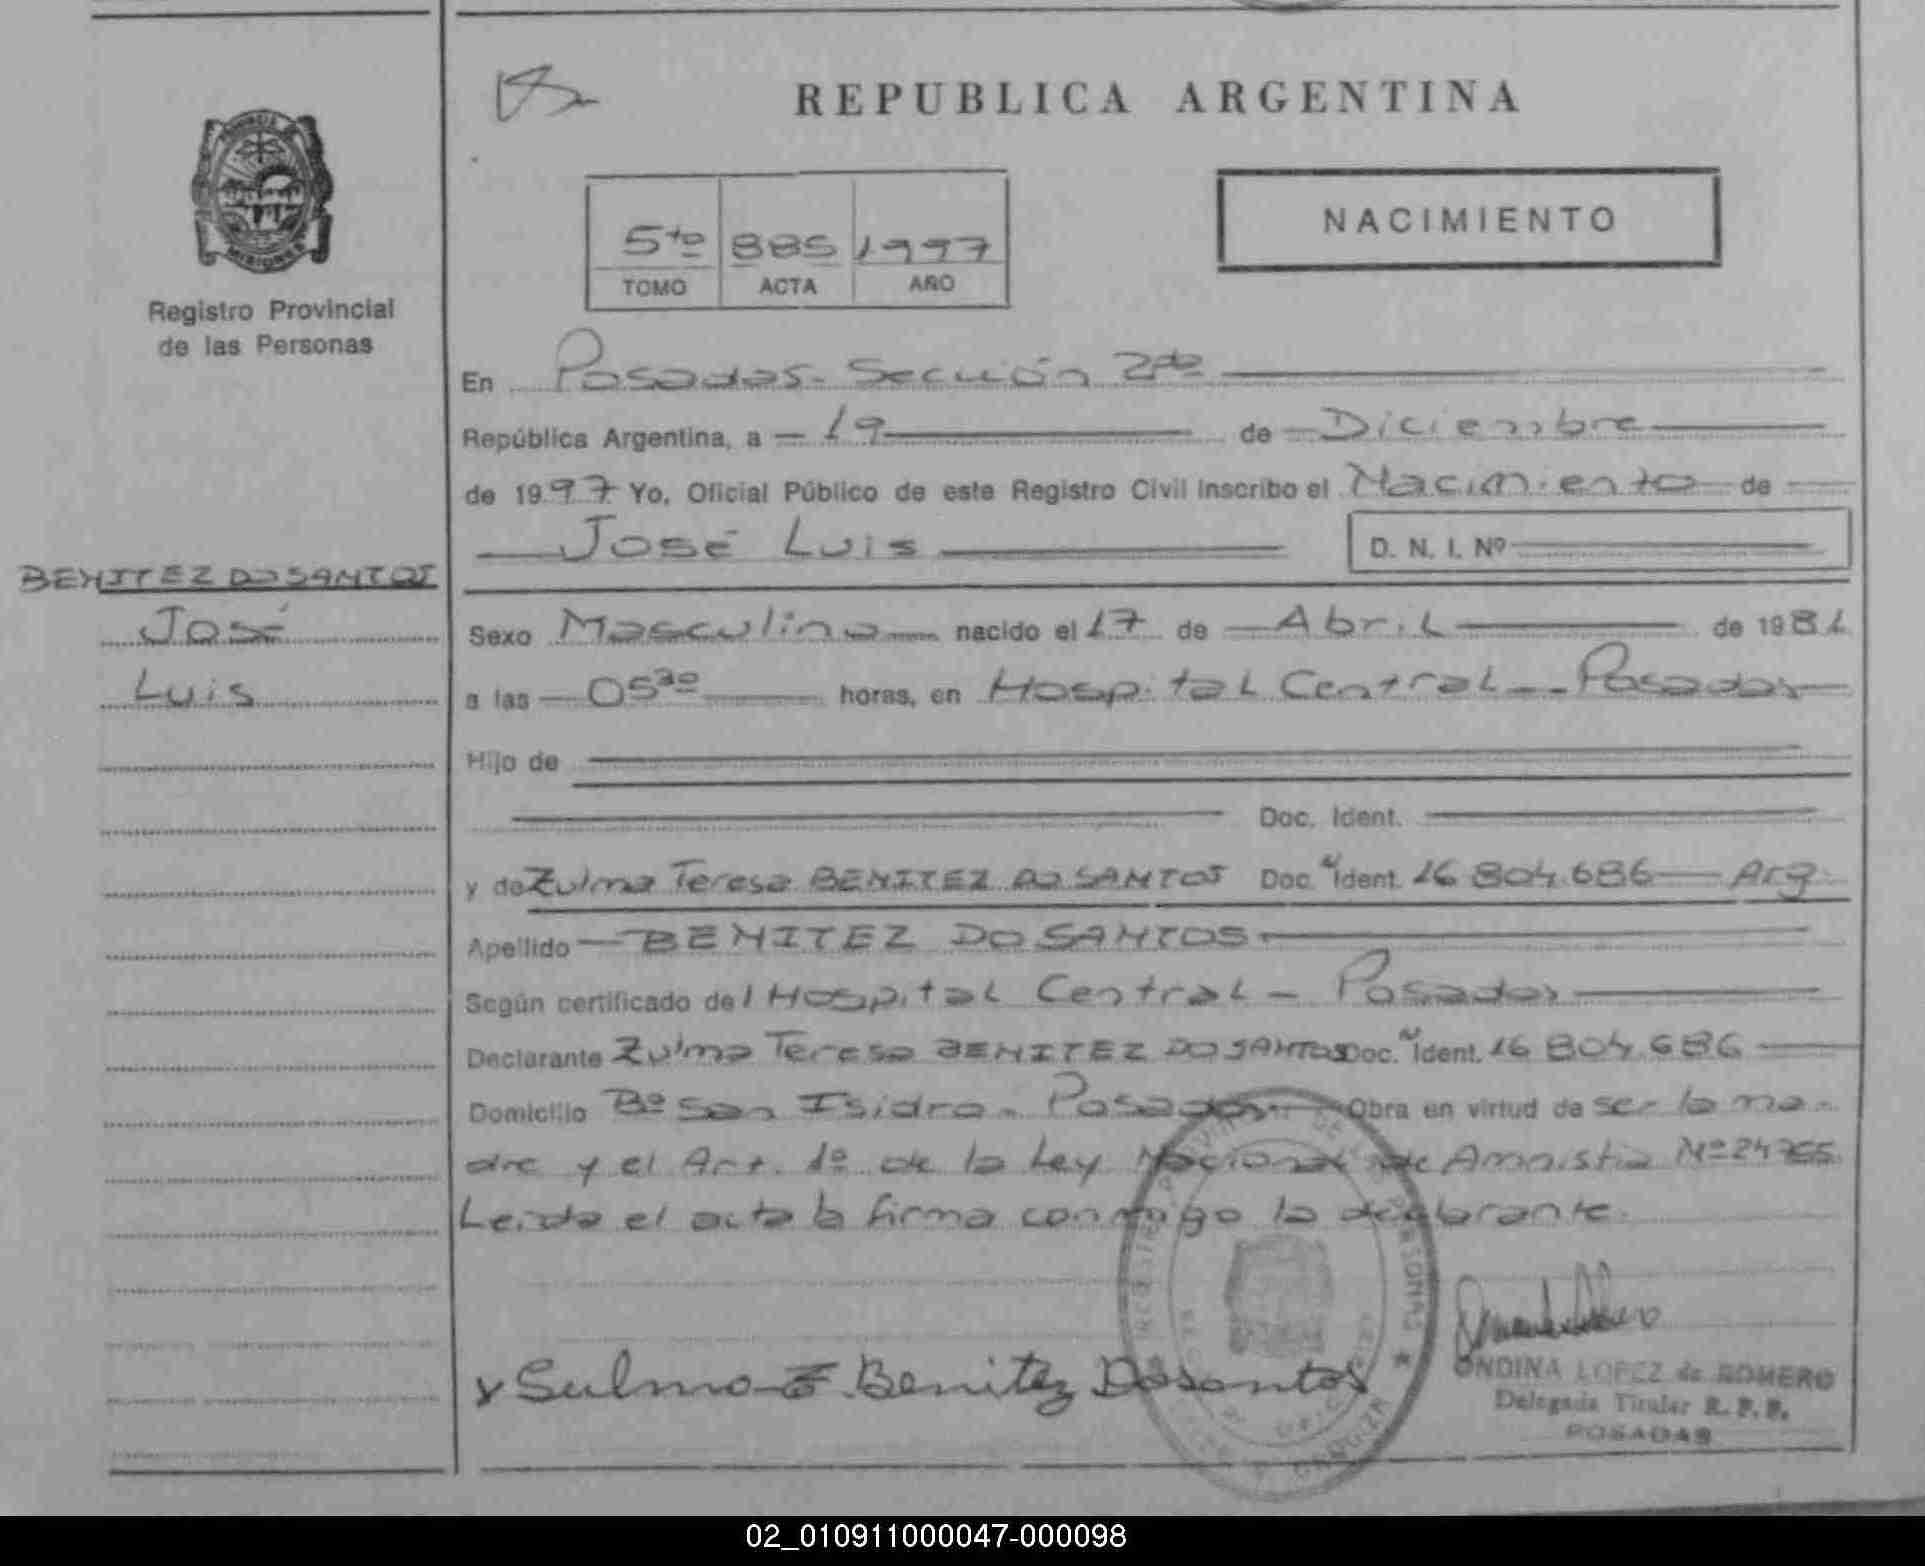 REPUBLICA ARGENTINA
PROVINCIA DE
MISIONES
Registro Provincial
de las Personas
NACIMIENTO
5to 885 1997
TOMO ACTA AÑO
En Posadas - Sección 2da
República Argentina, a 19 de Diciembre
de 1997 Yo, Oficial Público de este Registro Civil inscribo el Nacimiento de
José Luis D. N. I. Nº
BENITEZ DO SANTOS
José
Luis
Sexo Masculino nacido el 17 de Abril de 1981
a las 05 30 horas, en Hospital Central - Posadas
Hijo de
Doc. Ident.
y de Zulma Teresa BENITEZ DO SANTOS Doc. Ident. 16 804.686 Arg.
Apellido BENITEZ DO SANTOS
Según certificado del Hospital Central - Posadas
Declarante Zulma Teresa BENITEZ DO SANTOS Doc. Ident. 16 804.686
Domicilio Bº San Isidro - Posadas Obra en virtud de ser la ma-
dre y el Art. 1º de la Ley Nacional de Amnistia Nº 24755.
Leida el acta la firma conmigo la declarante.
x Sulma T. Benitez Dosantos
ONDINA LOPEZ de ROMERO
Delegada Titular R. P. P.
POSADAS
02_010911000047-000098